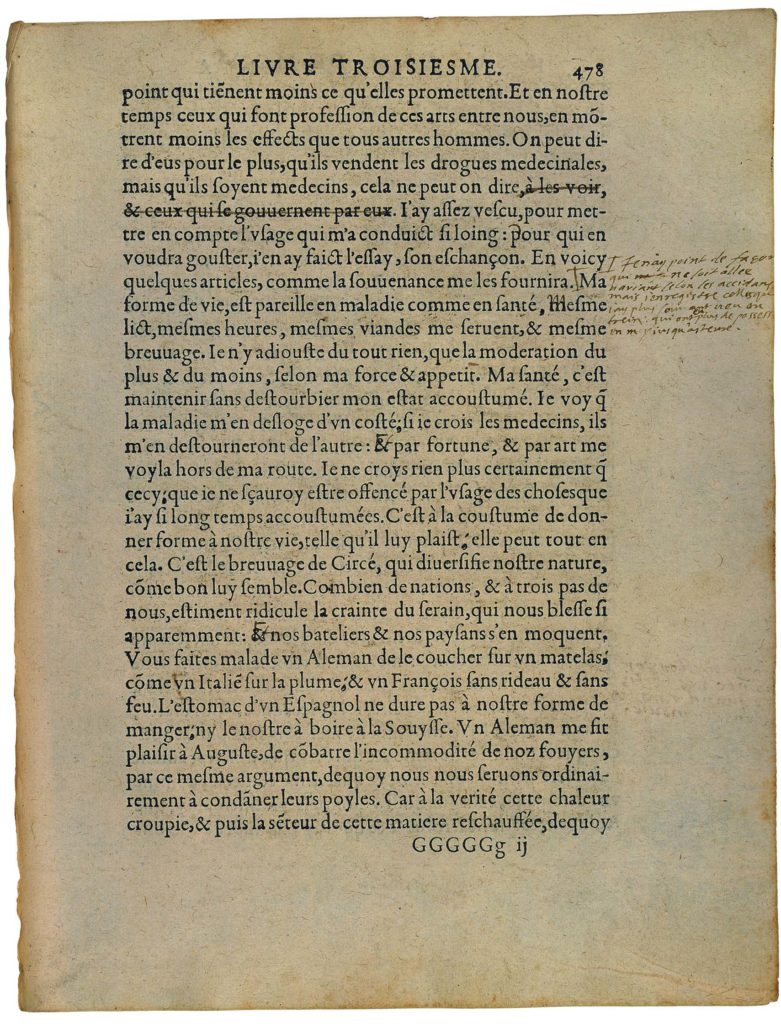 LIVRE TROISIESME. 478
point qui tiẽnent moins ce qu'elles promettent. Et en nostre
temps ceux qui font profession de ces arts entre nous, en mõ-
trent moins les effects que tous autres hommes. On peut di-
re d'eus pour le plus, qu'ils vendent les drogues medecinales,
mais qu'ils soyent medecins, cela ne peut on dire, à les voir,
& ceux qui se gouuernent par eux. I'ay assez vescu, pour met-
tre en compte l'vsage qui m'a conduict si loing: pour qui en
voudra gouster, i'en ay faict l'essay, son eschançon. En voicy
quelques articles, comme la souuenance me les fournira. Ma
forme de vie, est pareille en maladie comme en santé, Mesme
lict, mesmes heures, mesmes viandes me seruent, & mesme
breuuage. Ie n'y adiouste du tout rien, que la moderation du
plus & du moins, selon ma force & appetit. Ma santé, c'est
maintenir sans destourbier mon estat accoustumé. Ie voy q̃
la maladie m'en desloge d'vn costé; si ie crois les medecins, ils
m'en destourneront de l'autre: & par fortune, & par art me
voyla hors de ma route. Ie ne croys rien plus certainement q̃
cecy; que ie ne sçauroy estre offencé par l'vsage des choses que
i'ay si long temps accoustumées. C'est à la coustume de don-
ner forme à nostre vie, telle qu'il luy plaist; elle peut tout en
cela. C'est le breuuage de Circé, qui diuersifie nostre nature,
cõme bon luy semble. Combien de nations, & à trois pas de
nous, estiment ridicule la crainte du serain, qui nous blesse si
apparemment: & nos bateliers & nos paysans s'en moquent.
Vous faites malade vn Aleman de le coucher sur vn matelas;
cõme vn Italiẽ sur la plume; & vn François sans rideau & sans
feu. L'estomac d'vn Espagnol ne dure pas à nostre forme de
manger; ny le nostre à boire à la Souysse. Vn Aleman me fit
plaisir à Auguste, de cõbatre l'incommodité de noz fouyers,
par ce mesme argument, dequoy nous nous seruons ordinai-
rement à condãner leurs poyles. Car à la verité cette chaleur
croupie, & puis la sẽteur de cette matiere reschauffée, dequoy
GGGGGg ij
Ie n'ay point de façon
qui ne soit allée
variant selon les accidans
mais i'enregistre celles que
i'ay plus souvant veu en
trein: qui ont plus de possess